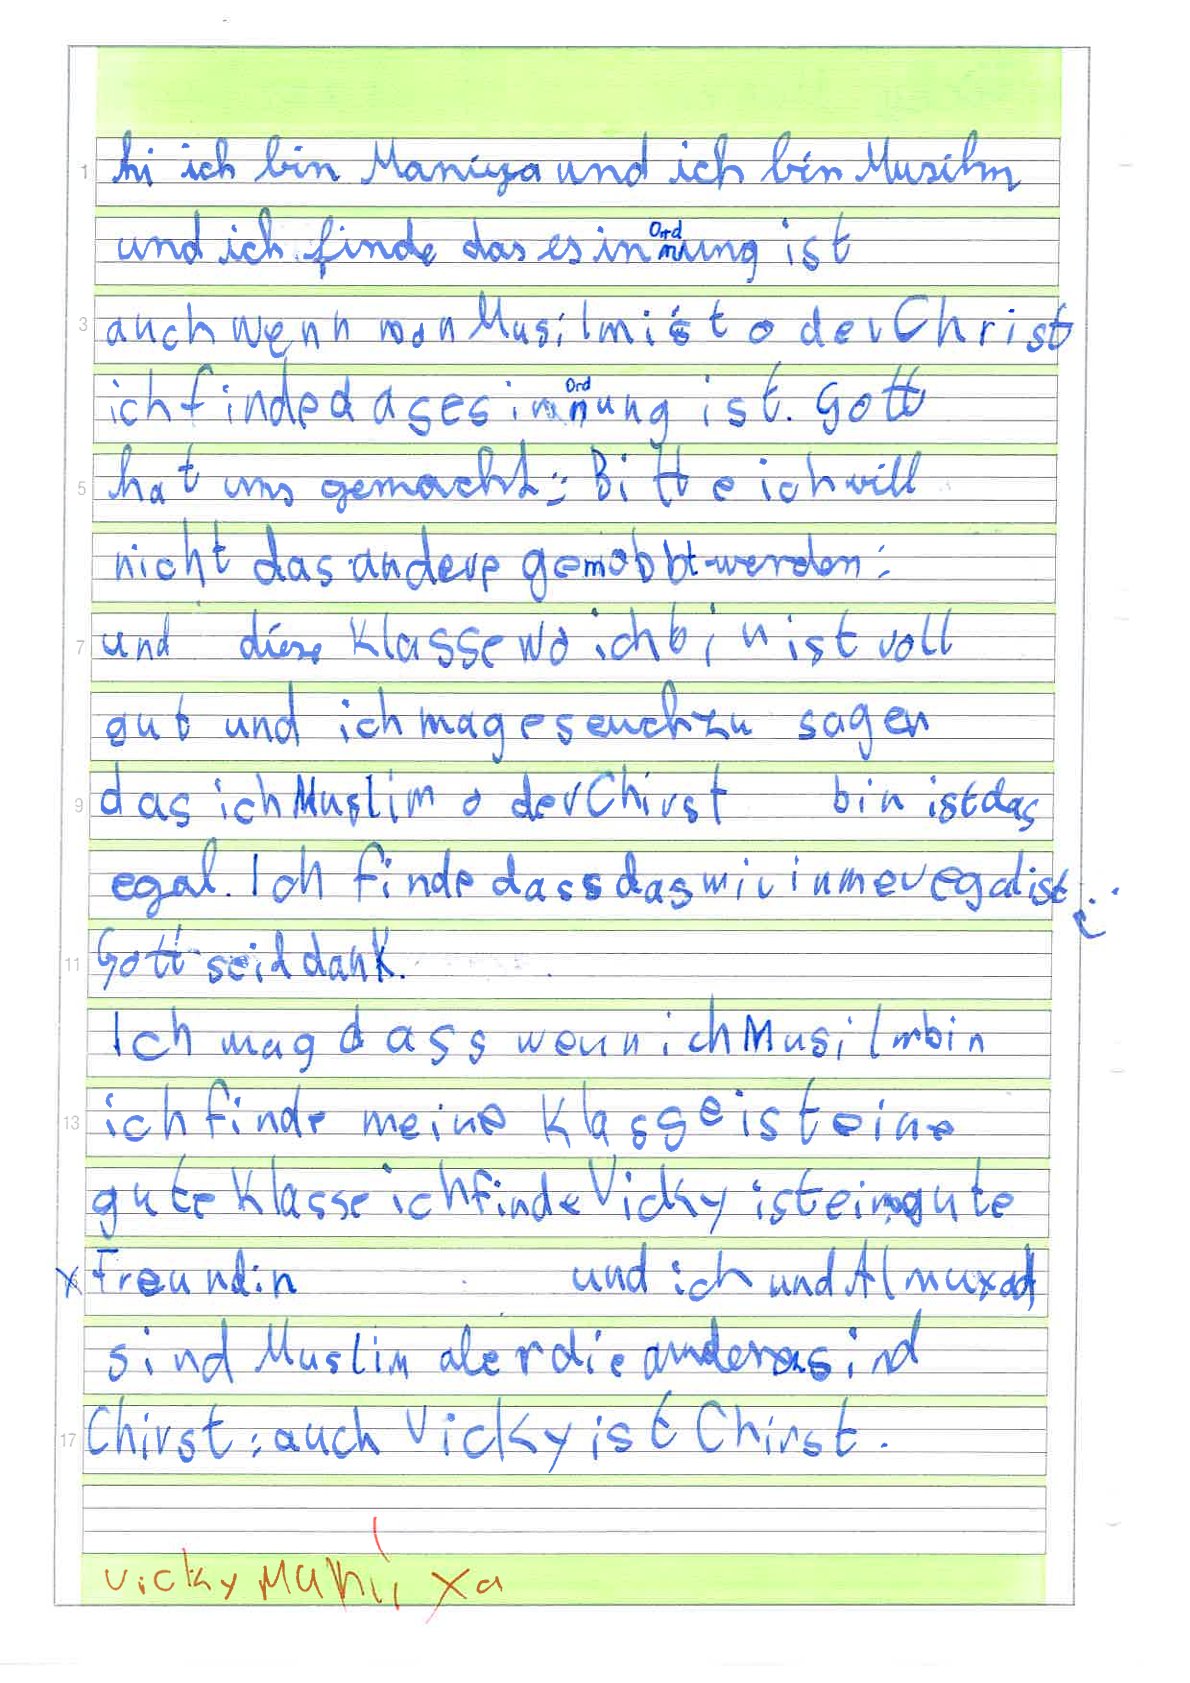 hi ich bin Maniza und ich bin Musilm
und ich finde das es in Ordnung ist
auch wenn man Musilm ist oder Christ
ich finde das es in Ordnung ist. Gott
hat uns gemacht: Bitte ich will
nicht das andere gemobbt werden:
und diese Klasse wo ich bin ist voll
gut und ich mag es euch zu sagen
das ich Muslim oder Chirst bin ist das
egal. Ich finde dass das mir immer egal ist
Gott seid dank.
Ich mag dass wenn ich Musilm bin
ich finde meine Klasse ist eine
gute Klasse ich finde Vicky ist eine gute
x Freundin und ich und Almuxad
sind Muslim aber die anderen sind
Chirst: auch Vicky ist Chirst.
Vicky Manixa
1
3
5
7
9
11
13
17